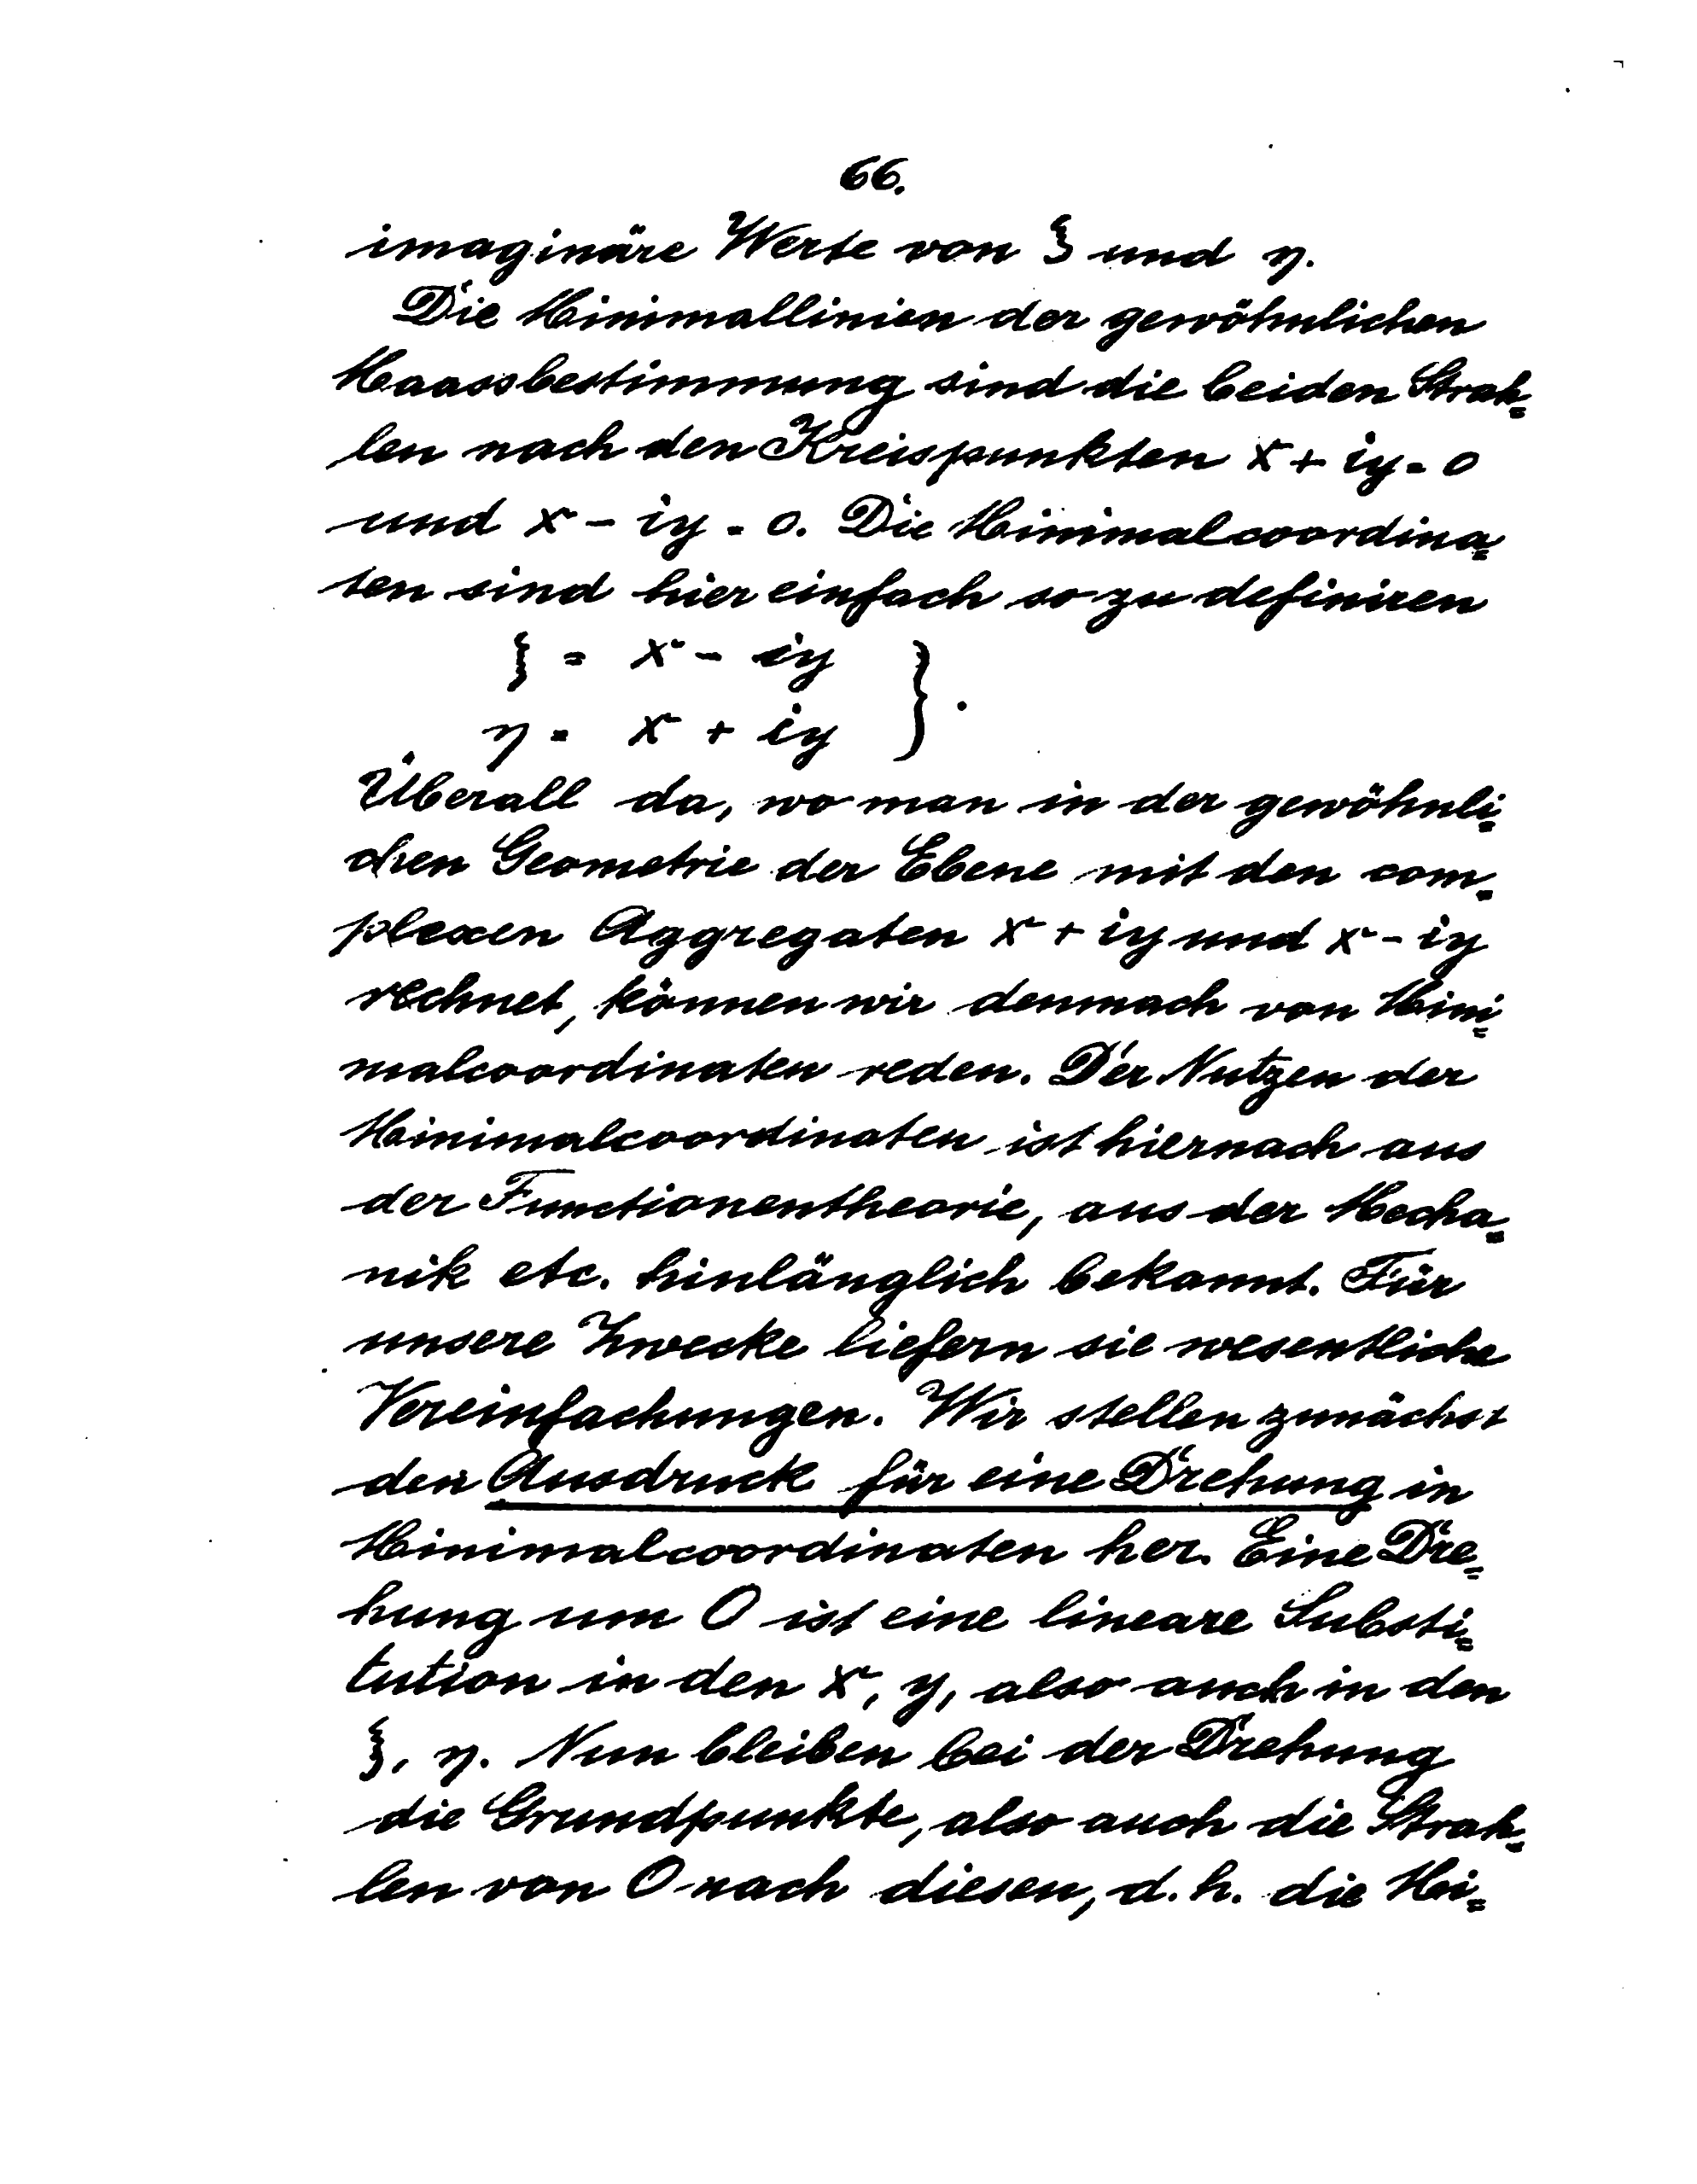 66.
imaginäre Werte von ξ und η.
Die Minimallinien der gewöhnlichen
Maassbestimmung sind die beiden Strah=
len nach den Kreispunkten x + iy = 0
und x - iy = 0. Die Minimalcoordina=
ten sind hier einfach so zu definiren
ξ = x - iy
η = x + iy }.
Überall da, wo man in der gewöhnli=
chen Geometrie der Ebene mit den com=
plexen Aggregaten x + iy und x - iy
rechnet, können wir demnach von Mini=
malcoordinaten reden. Der Nutzen der
Minimalcoordinaten ist hiernach aus
der Functionentheorie, aus der Mecha=
nik etc. hinlänglich bekannt. Für
unsere Zwecke liefern sie wesentliche
Vereinfachungen. Wir stellen zunächst
den Ausdruck für eine Drehung in
Minimalcoordinaten her. Eine Dre=
hung um O ist eine lineare Substi=
tution in den x, y, also auch in den
ξ, η. Nun bleiben bei der Drehung
die Grundpunkte, also auch die Strah=
len von O nach diesen, d. h. die Mi=